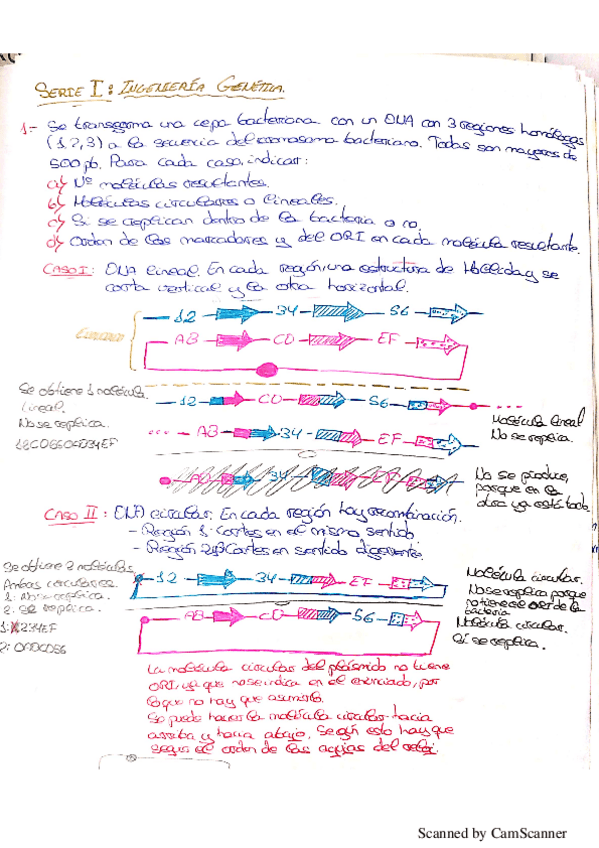 SERIE I: INGENIERÍA GENÉTICA.
1.- Se transforma una cepa bacteriana con un DNA con 3 regiones homólogas
(1,2,3) a la secuencia del cromosoma bacteriano. Todas son mayores de
500 pb. Para cada caso, indicar:
a) Nº moléculas resultantes.
b) Moléculas circulares o lineales.
c) Si se replican dentro de la bacteria o no.
d) Orden de los marcadores y del ORI en cada molécula resultante.
CASO I: DNA lineal. En cada región, una estructura de Holliday se
corta vertical y la otra horizontal.
12 34 56
AB CD EF
Se obtiene 1 molécula.
Lineal.
No se replica.
12 CD 56
Molécula lineal
No se replica.
... AB 34 EF
AB 34 EF
No se produce,
porque en la
otra ya está todo.
CASO II: DNA circular. En cada región hay recombinación.
- Región 1: Cortes en el mismo sentido.
- Región 2y3: Cortes en sentido diferente.
Se obtiene 2 moléculas
Ambas circulares.
1: No se replica.
2: Se replica.
12 34 EF
Molécula circular.
No se replica porque
no tiene el ORI de la
bacteria
AB CD 56
Molécula circular.
Sí se replica.
La molécula circular del plásmido no tiene
ORI, ya que no se indica en el enunciado, por
lo que no hay que asumirlo.
Se puede hacer la molécula circular hacia
arriba y hacia abajo. Según esto hay que
seguir el orden de las agujas del reloj.
Scanned by CamScanner